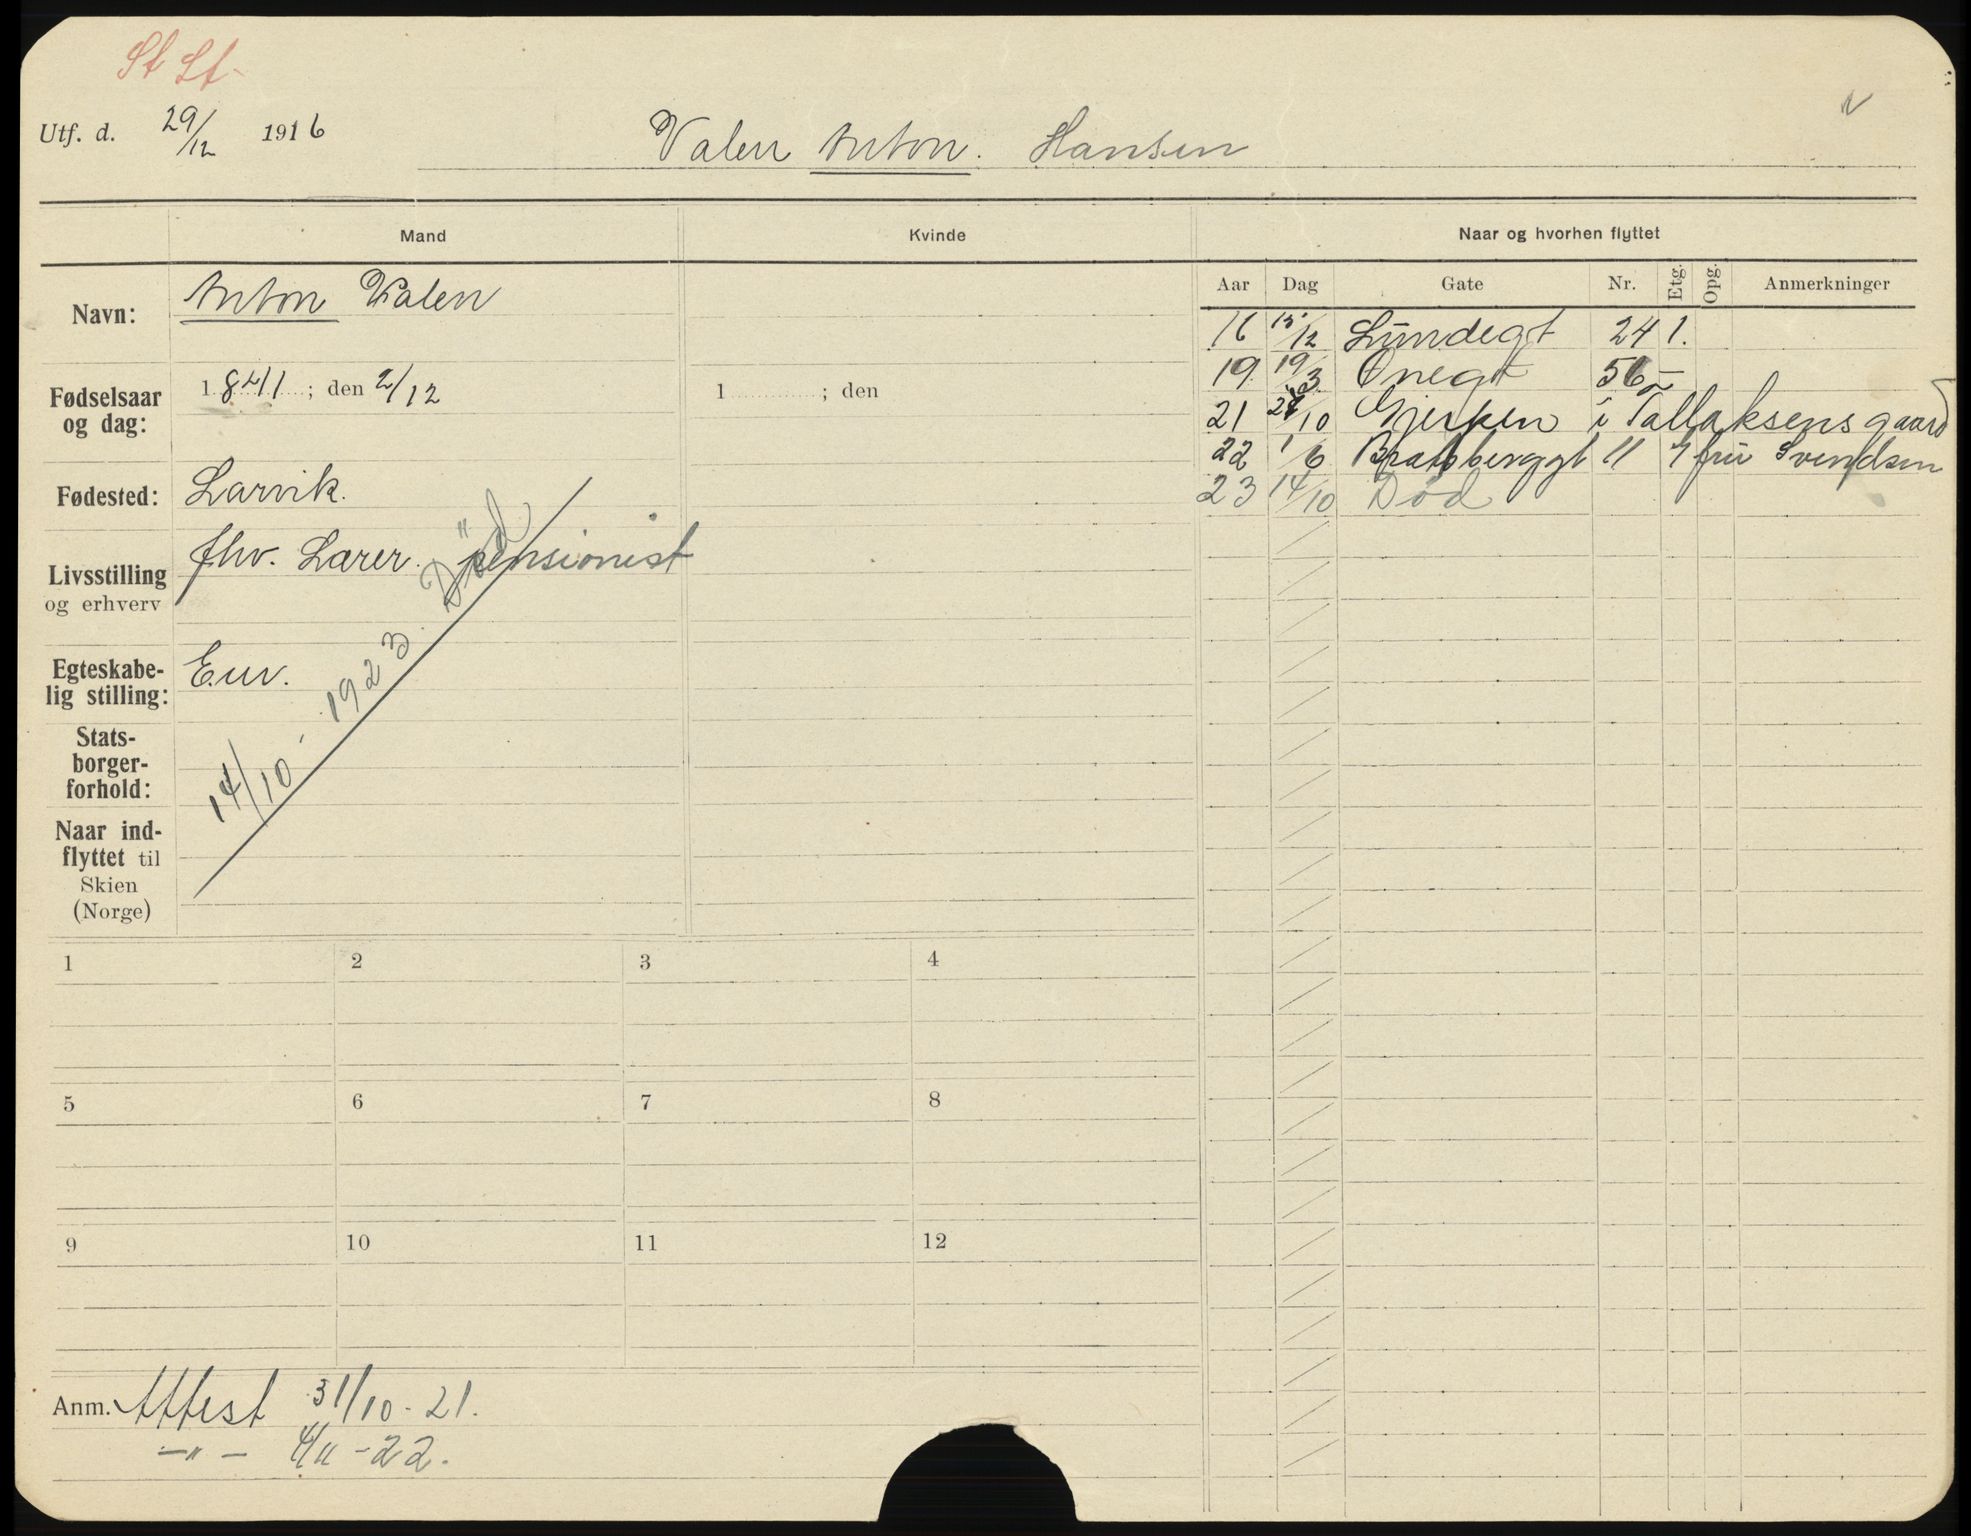 St St-
Utf. d. 29/12 1916
Valen Anton. Hansen
Mand
Kvinde
Naar og hvorhen flyttet
Navn: Anton Valen
Fødselsaar og dag: 1841; den 2/12
1 ; den
Fødested: Larvik.
Livsstilling og erhverv fhv. Lærer. pensionist
Egteskabe-
lig stilling: Em.
Stats-
borger-
forhold:
Naar ind-
flyttet til
Skien
(Norge)
14/10 - 1923. Död
Aar Dag Gate Nr. Etg. Opg. Anmerkninger
16 15/12 Lundegt 24 1.
19 19/3 Snegt 56
21 27/10 Gjerpen i Tallaksensgaard
22 1/6 Bratsberggt 11 fru Svendsen
23 14/10 Død
1 2 3 4
5 6 7 8
9 10 11 12
Anm. Attest 31/10-21.
—"— 4/11-22.